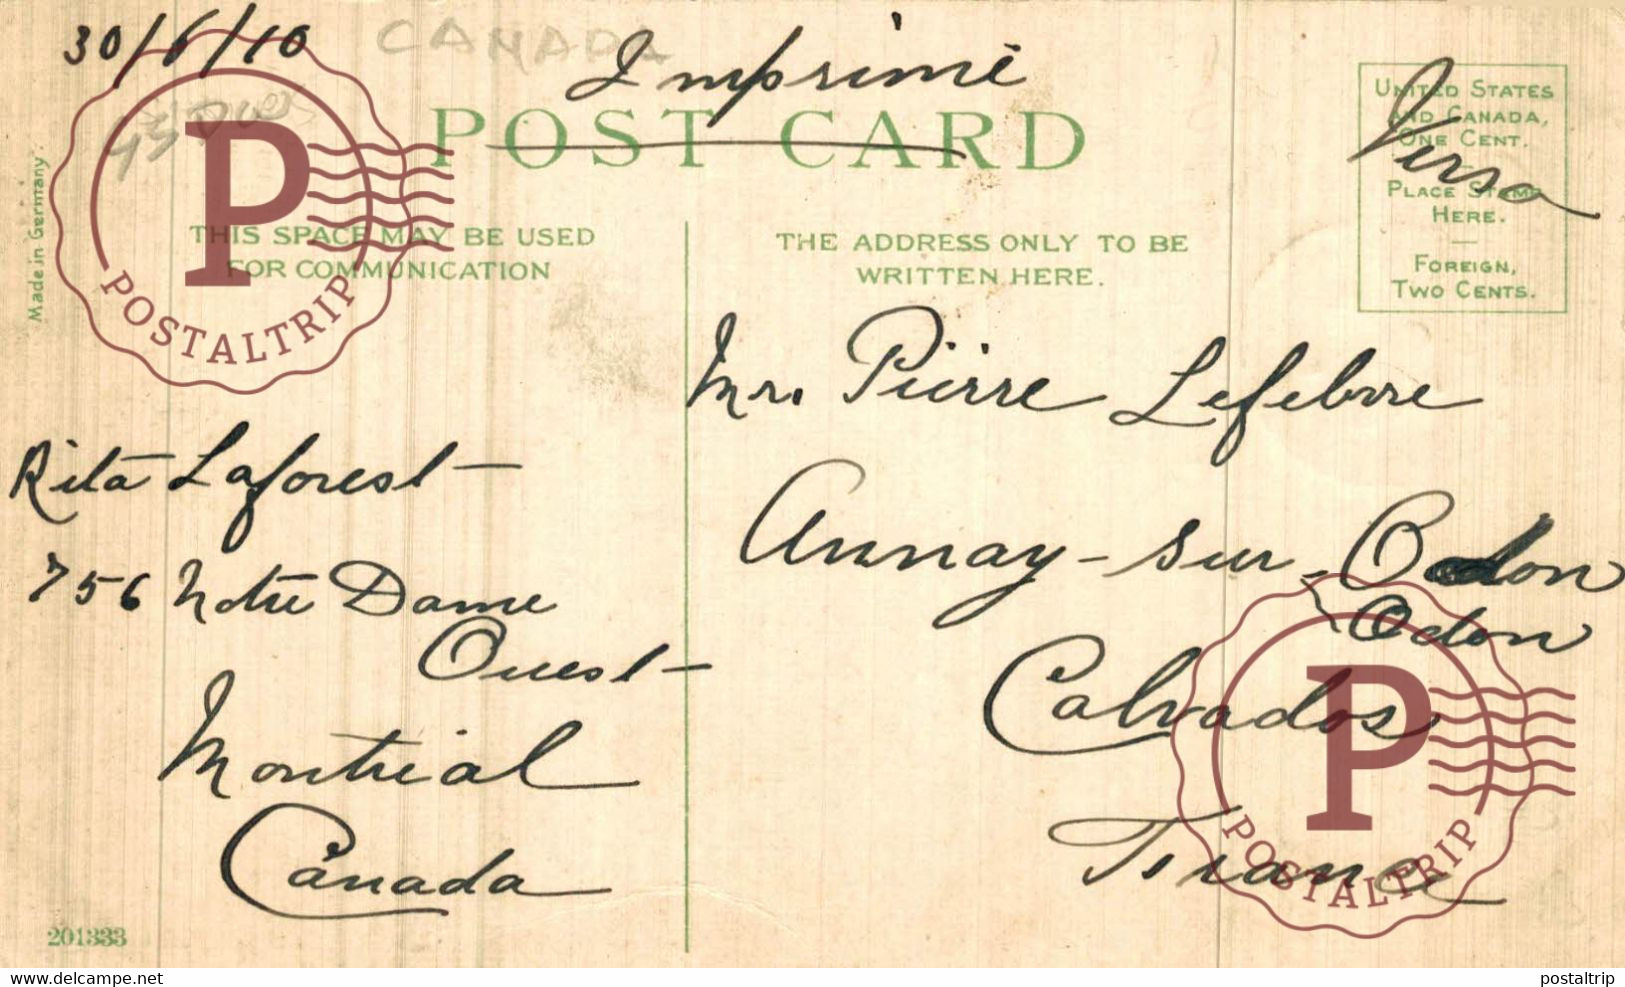 30/6/10
CANADA
Imprimé
POST CARD
UNITED STATES
AND CANADA,
ONE CENT.
PLACE STAMP
HERE.
FOREIGN,
TWO CENTS.
Verso
Made in Germany.
THIS SPACE MAY BE USED
FOR COMMUNICATION
THE ADDRESS ONLY TO BE
WRITTEN HERE.
POSTALTRIP
Mr. Pierre Lefebvre
Aunay-sur-Odon
Odon
Calvados
France
Rita Laforest
756 Notre Dame
Ouest
Montreal
Canada
POSTALTRIP
201333
www.delcampe.net
postaltrip